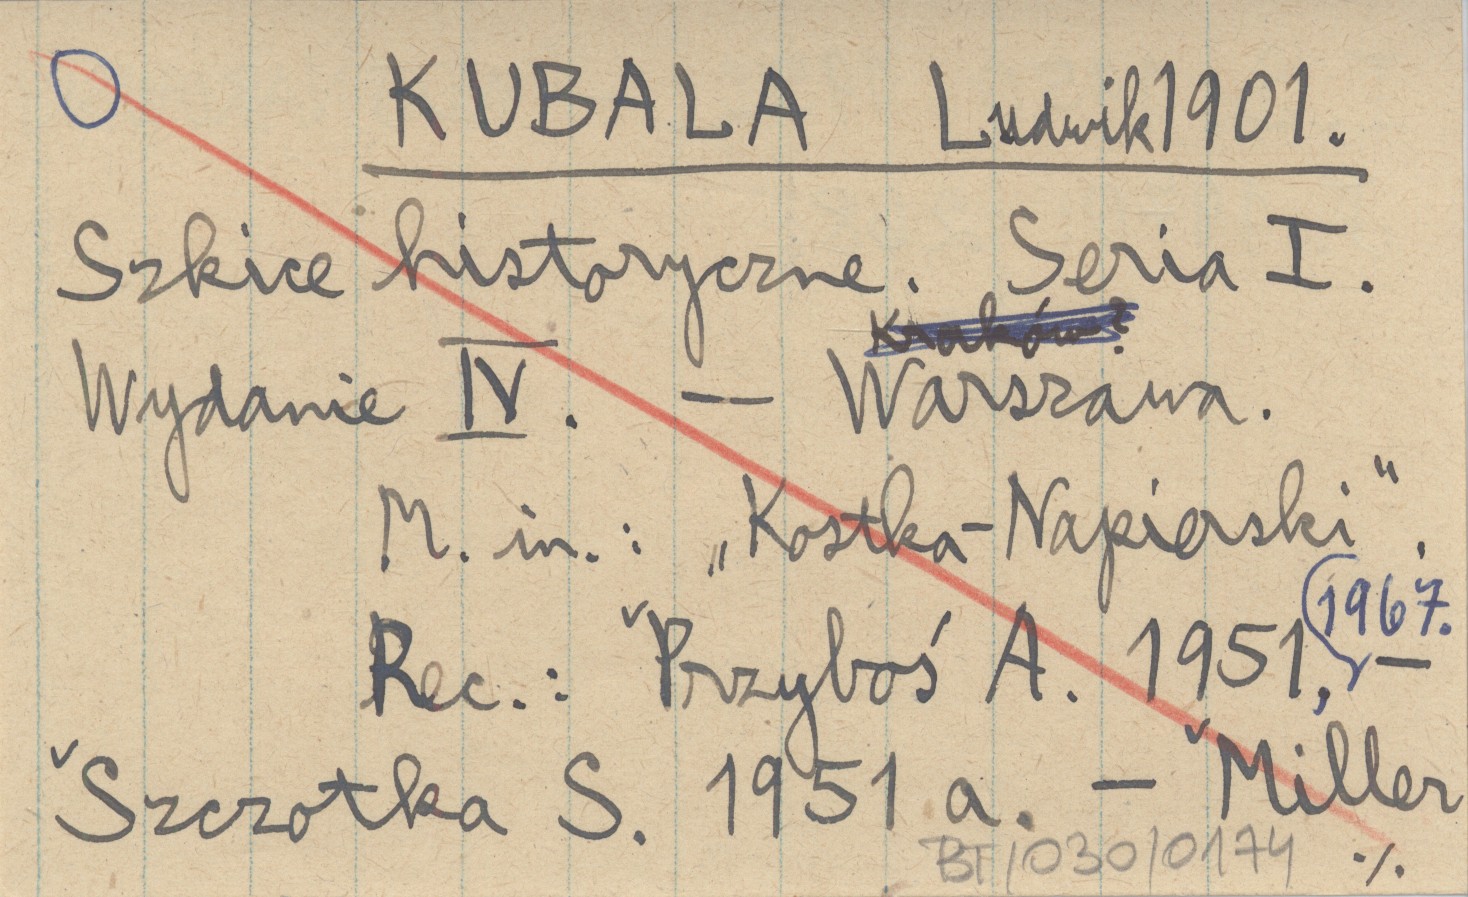 KUBALA Ludwik 1901.
Szkice historyczne. Seria I.
Kraków?
Wydanie IV. — Warszawa.
M. in.: „Kostka-Napierski".
1967.
Rec.: ˇPrzyboś A. 1951, —
ˇSzczotka S. 1951 a. — ˇMiller
BT/030/0174 ./.